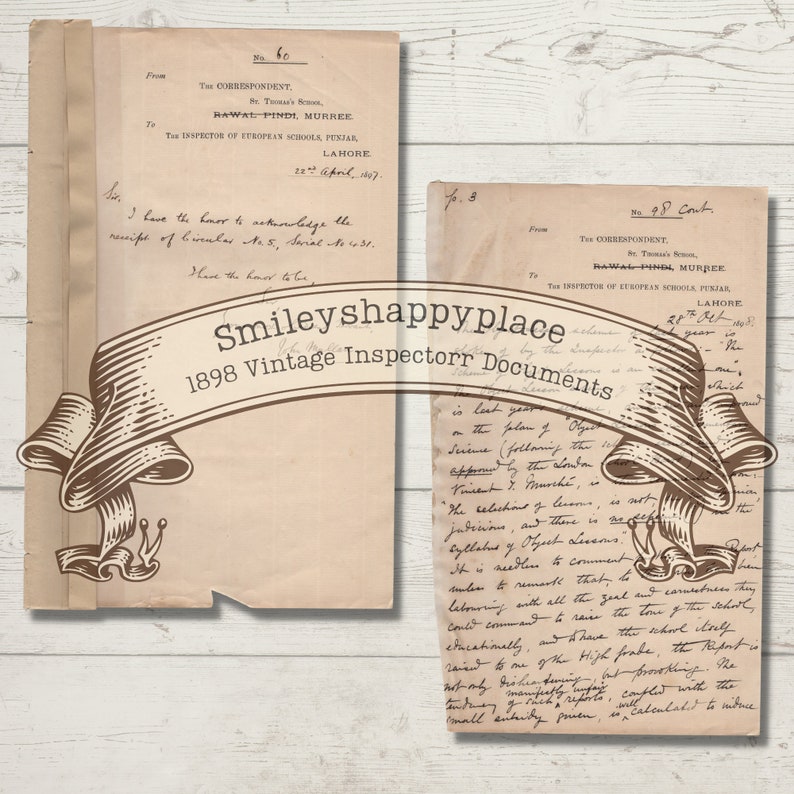 No. 60
From
THE CORRESPONDENT,
ST. THOMAS'S SCHOOL,
RAWAL PINDI, MURREE.
To
THE INSPECTOR OF EUROPEAN SCHOOLS, PUNJAB,
LAHORE.
22nd April, 1897.
Sir,
I have the honor to acknowledge the
receipt of Circular No. 5, Serial No 431.
I have the honor to be,
Smileyshappyplace
1898 Vintage Inspectorr Documents
p. 3
No. 98 Cont.
From
THE CORRESPONDENT,
ST. THOMAS'S SCHOOL,
RAWAL PINDI, MURREE.
To
THE INSPECTOR OF EUROPEAN SCHOOLS, PUNJAB,
LAHORE.
28TH Oct 1898.
scheme year is
by the Inspector "The
Lessons is an one".
which
is last year's scheme,
on the plan of "Object
Science (following the
approved by the London
Vincent T. Murché, is
"The selections of lessons, is not,
judicious, and there is no the
syllabus of Object Lessons".
It is needless to comment Report
unless to remark that, to been
labouring with all the zeal and earnestness they
could command to raise the tone of the school,
educationally, and to have the school itself
raised to one of the High Grade, the Report is
not only disheartening, but provoking. The
tendency of such manifestly unfair reports, coupled with the
small subsidy given, is well calculated to induce